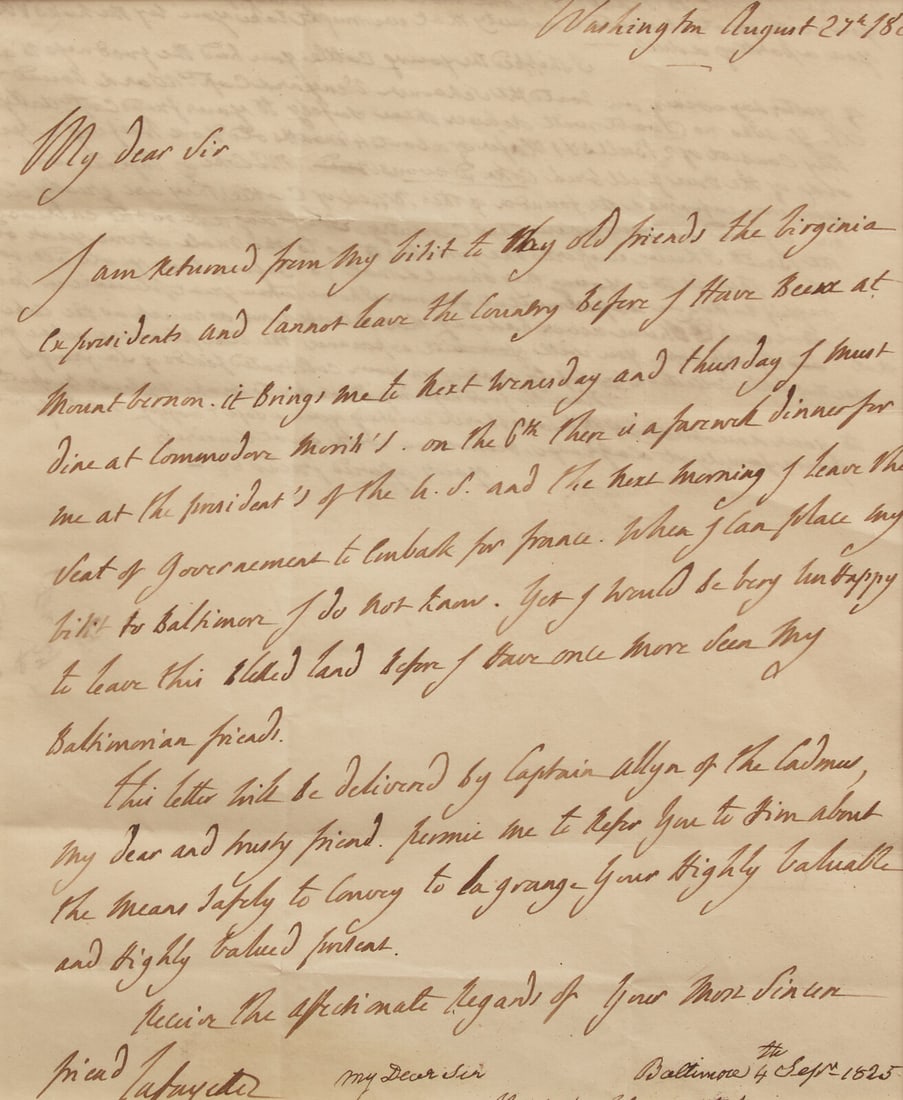 Washington August 27th 18
My dear Sir
I am Returned from My visit to My old friends the virginia
expresidents and Cannot leave the Country Before I Have Been at
Mount vernon. it Brings me to Next Wenesday and thursday I Must
dine at Commodore Morris's. on the 6th there is a farewell dinner for
me at the president's of the U. S. and the Next Morning I leave the
Seat of Governement to Embark for france. When I Can place my
visit to Baltimore I do Not know. Yet I Would Be very UnHappy
to leave this Blessed land Before I Have once More Seen My
Baltimorian friends.
this letter Will Be delivered by Captain Allyn of the Cadmus,
My dear and trusty friend. permit Me to Refer You to Him about
the Means Safely to Convey to la grange Your Highly valuable
and Highly valued present.
Receive the affectionate Regards of Your Most Sincere
friend Lafayette
My Dear Sir Baltimore 4th Sepr 1825